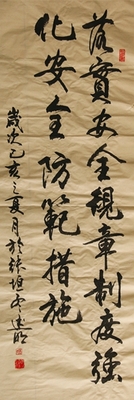 落實安全規章制度強
化安全防範措施
歲次己亥之夏月於